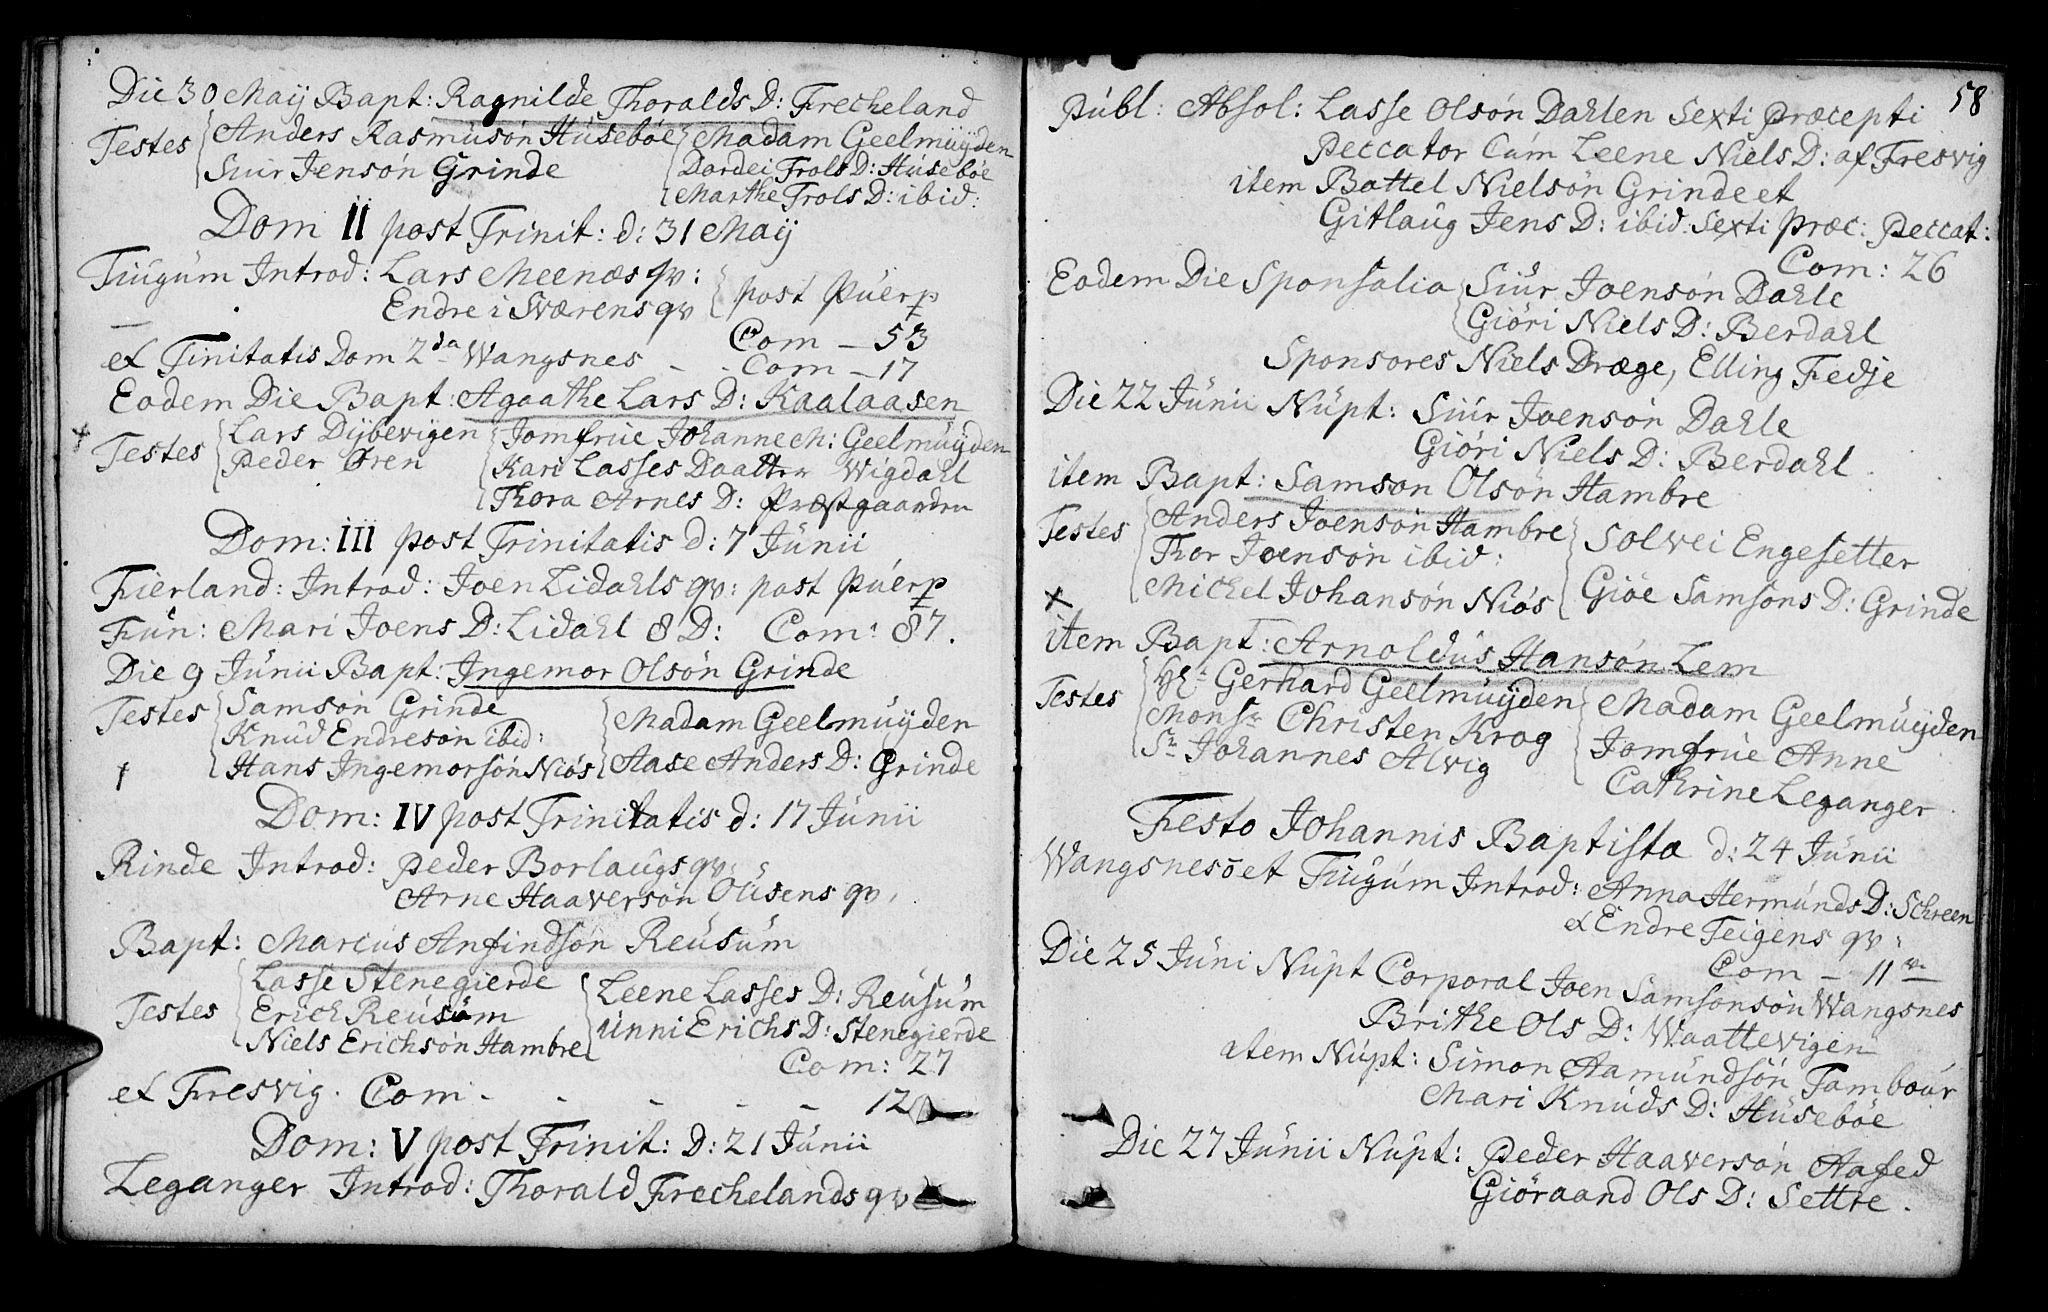 Die 30 Maÿ Bapt: Ragnilde Thoralds D: Frecheland
Testes Anders Rasmusøn Húsebøe Madam Geelmuÿden
Siur Jensón Grinde Dordei Trols D: Húsebøe
Marthe Trols D: ibid:
Dom II post Trinit: d: 31 Maÿ
Tiúgúm Introd: Lars Meenæs qv:
Endre i Sværens qv post Púerp
Com – 53
et Tinitatis Dom 2da Wangsnes - - Com – 17
Eodem Die Bapt: Agaathe Lars D: Kaalaasen
Testes Lars Dÿbevigen Jomfrúe Johanne M: Geelmúÿden
Peder Øren Kari Lasses Daatter Wigdahl
Thora Arnes D: Præstgaarden
Dom: III post Trinitatis d: 7 Júnii
Fierland: Introd: Joen Lidahls qv: post Púerp
Fún: Mari Joens D: Lidahl 8 D: Com: 87.
Die 9 Júnii Bapt: Ingemor Olsón Grinde
Testes Samsón Grinde Madam Geelmúÿden
Knúd Endresón ibid:
Hans Ingemorsón Niós Aase Anders D: Grinde
Dom: IV post Trinitatis d: 17 Júnii
Rinde Introd: Peder Borlaúgs qv:
Arne Haaversón Oúsens qv,
Bapt: Marcús Anfindsón Reúsúm
Lasse Stenegierde Leene Lasses D: Reúsúm
Testes Erich Reúsúm
Niels Erichsón Hambre Únni Erichs D: Stenegierde
Com: 27
et Fresvig. Com - - - - - 12
Dom: V post Trinit: D: 21 Júnii
Leganger Introd: Thorald Frechelands qv
58
Públ: Absol: Lasse Olsón Dahlen Sexti Præcepti
Peccator Cúm Leene Niels D: af Fresvig
item Battel Nielsón Grinde et
Gitlaúg Jens D: ibid: Sexti Præc: Peccat:
Com: 26
Eodem Die Sponsalia Siúr Joensón Dahle
Gióri Niels D: Berdahl
Sponsores Niels Dræge, Elling Fedje
Die 22 Júnii Núpt: Siúr Joensón Dahle
Gióri Niels D: Berdahl
item Bapt: Samson Olsón Hambre
Testes Anders Joensón Hambre Solvei Engesetter
Thor Joensón ibid:
Michel Johansón Niós Gióe Samsons D: Grinde
item Bapt: Arnoldús Hansón Lem
Testes Hr: Gerhard Geelmúÿden Madam Geelmúÿden
Monsr Christen Krog Jomfrúe Anne
Sr Johannes Alvig Cathrine Leganger
Festo Johannis Baptista d: 24 Júnii
Wangsnes et Tiúgúm Introd: Anna Hermúnds D: Schreen
et Endre Teigens qv:
Com – 11
Die 25 Júni Núpt Corporal Joen Samsonsón Wangsnes
Brithe Ols D: Waattevigen
atem Núpt: Simon Aamúndsón Tamboúr
Mari Knúds D: Húsebóe
Die 27 Júnii Núpt: Peder Haaversón Aafed
Gióraand Ols D: Settre.